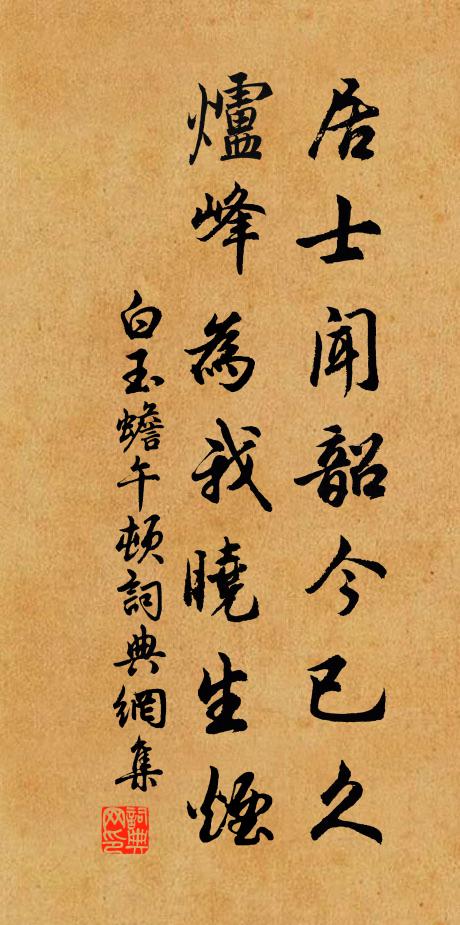 居士聞韶今已久
爐峰為我曉生煙
白玉蟾午頓詞典網集
詞典网印